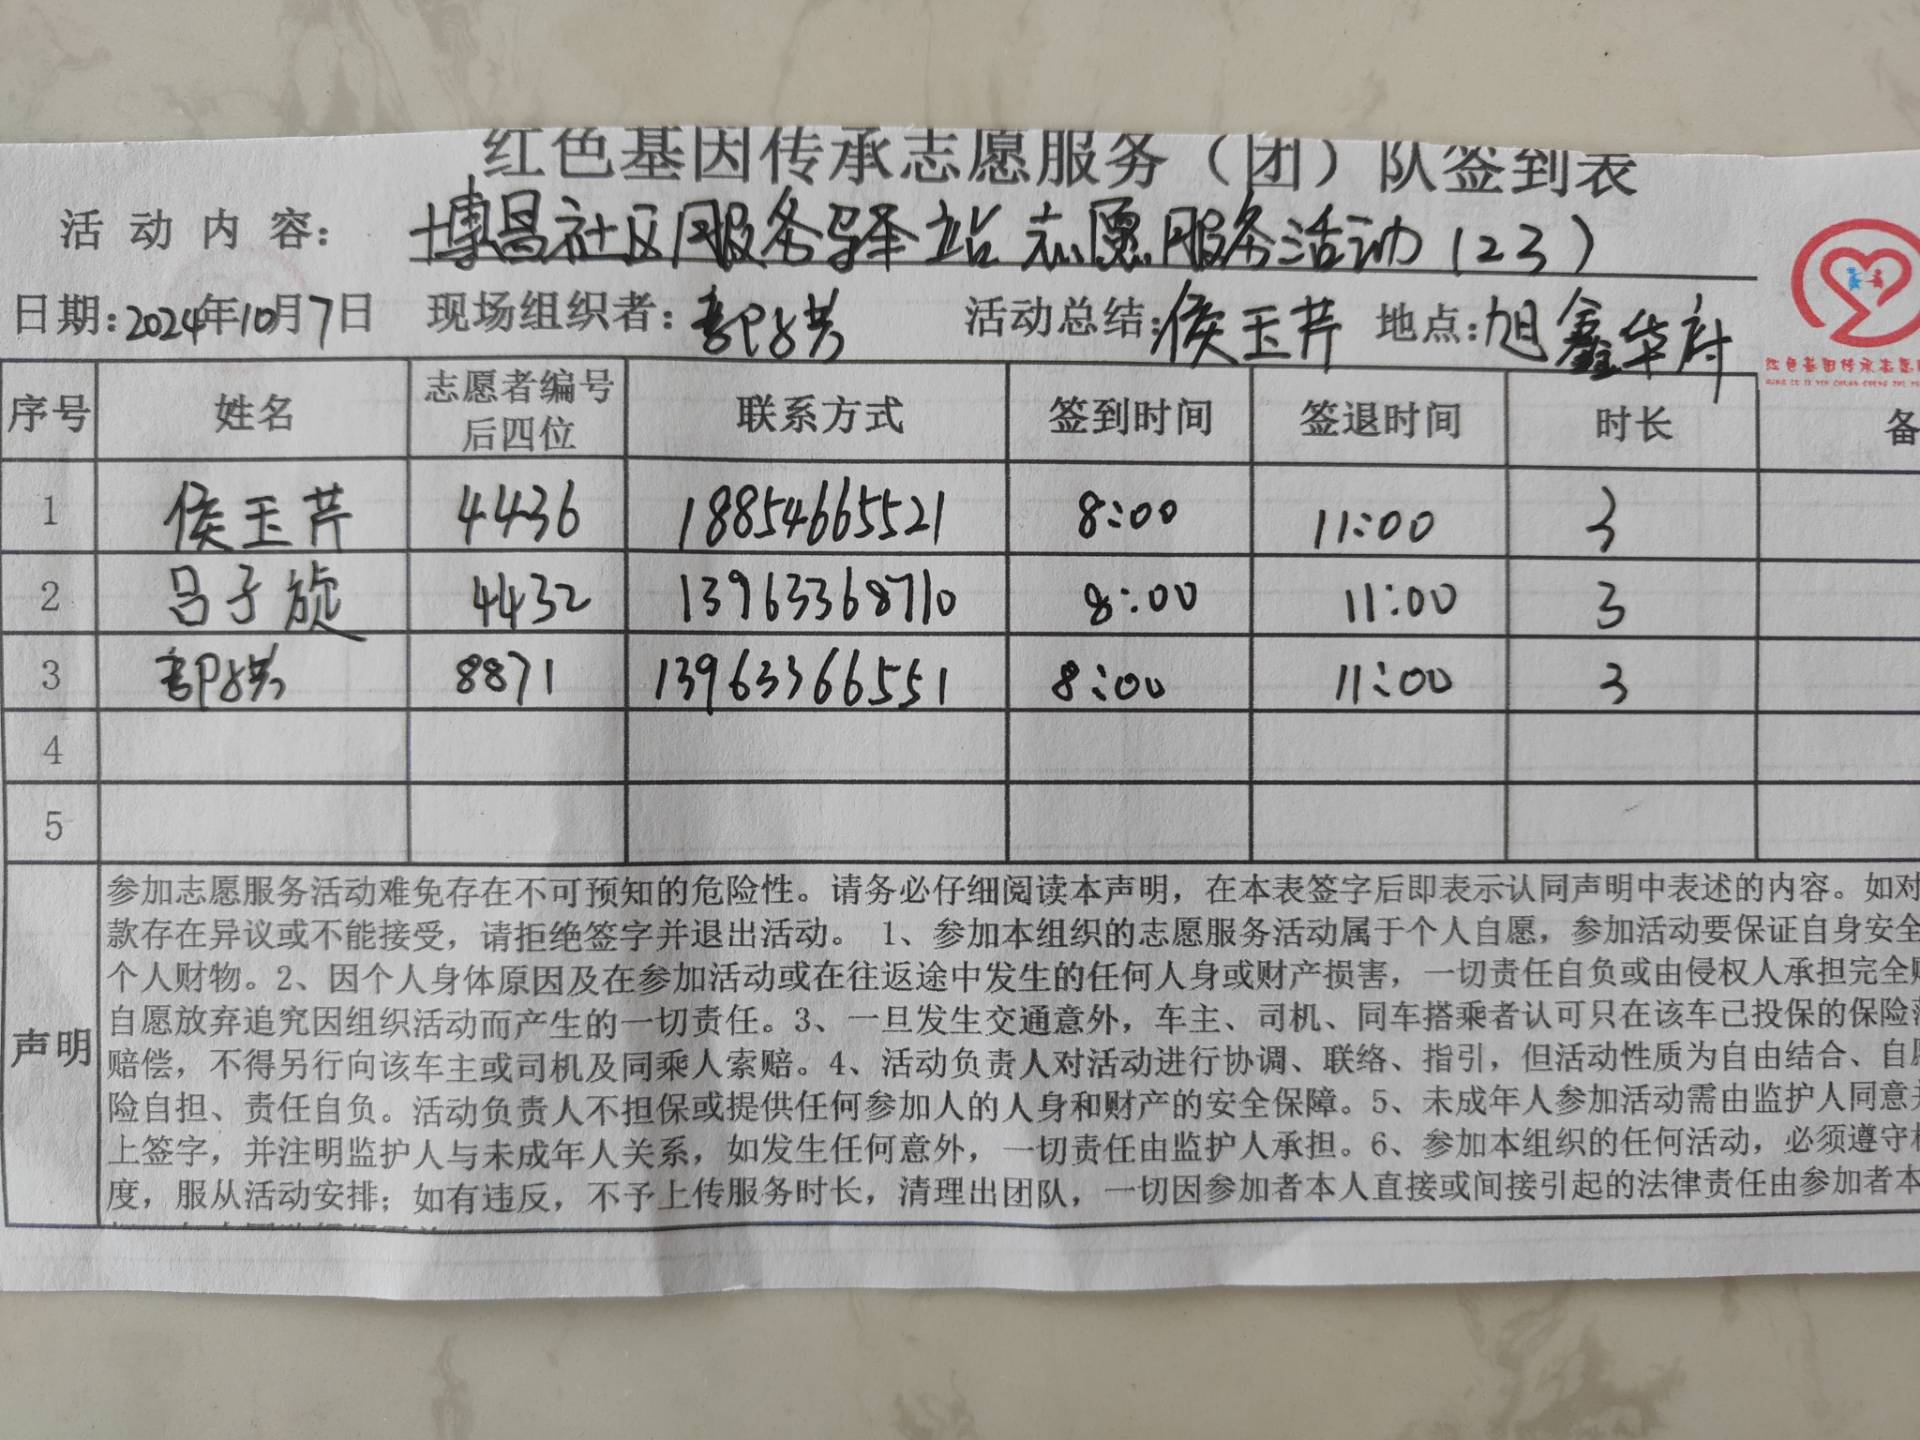 红色基因传承志愿服务（团）队签到表
活动内容：博昌社区服务驿站志愿服务活动（23）
日期：2024年10月7日 现场组织者： 活动总结：侯玉芹 地点：旭鑫华府
红色基因传承志愿
序号 姓名 志愿者编号后四位 联系方式 签到时间 签退时间 时长 备
1 侯玉芹 4436 18854665521 8:00 11:00 3
2 吕子旋 4432 13963368710 8:00 11:00 3
3 8871 13963366551 8:00 11:00 3
4
5
声明
参加志愿服务活动难免存在不可预知的危险性。请务必仔细阅读本声明，在本表签字后即表示认同声明中表述的内容。如对
款存在异议或不能接受，请拒绝签字并退出活动。 1、参加本组织的志愿服务活动属于个人自愿，参加活动要保证自身安全
个人财物。2、因个人身体原因及在参加活动或在往返途中发生的任何人身或财产损害，一切责任自负或由侵权人承担完全
自愿放弃追究因组织活动而产生的一切责任。3、一旦发生交通意外，车主、司机、同车搭乘者认可只在该车已投保的保险
赔偿，不得另行向该车主或司机及同乘人索赔。4、活动负责人对活动进行协调、联络、指引，但活动性质为自由结合、自愿
险自担、责任自负。活动负责人不担保或提供任何参加人的人身和财产的安全保障。5、未成年人参加活动需由监护人同意
上签字，并注明监护人与未成年人关系，如发生任何意外，一切责任由监护人承担。6、参加本组织的任何活动，必须遵守
度，服从活动安排；如有违反，不予上传服务时长，清理出团队，一切因参加者本人直接或间接引起的法律责任由参加者本